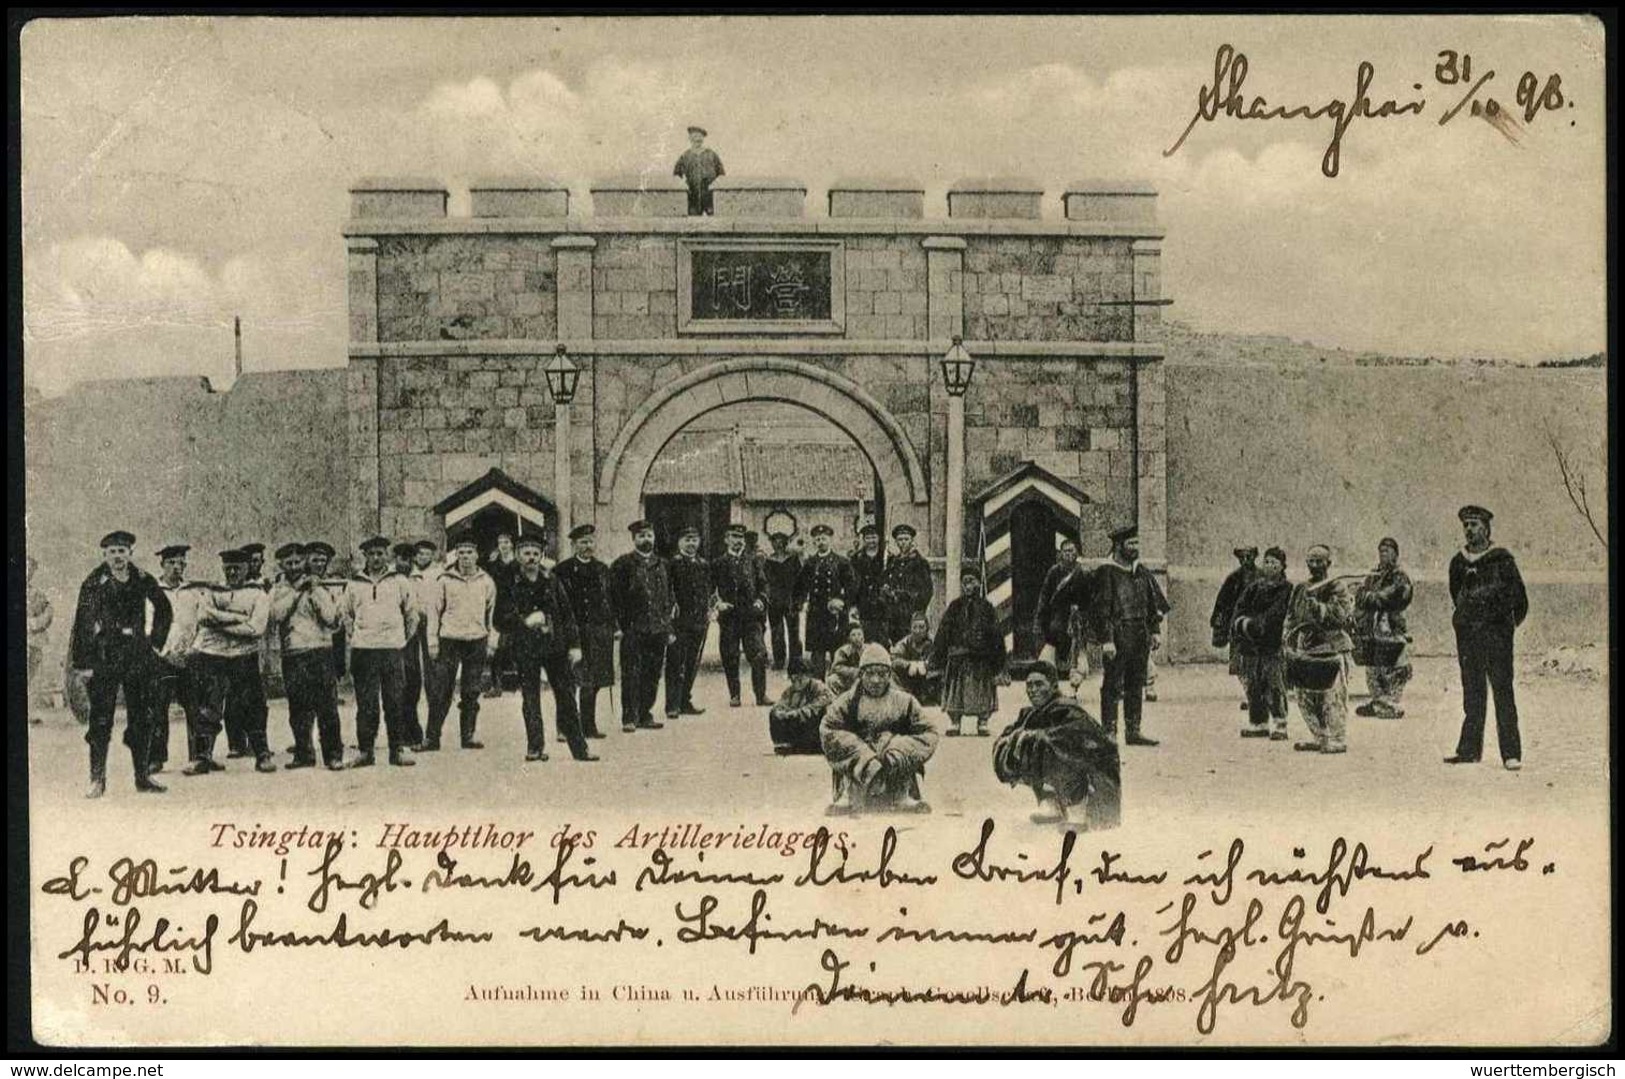 Shanghai 31/10 98.
營門
Tsingtau: Hauptthor des Artillerielagers.
L. Mutter! Herzl. Dank für Deinen lieben Brief, den ich nächstens aus-
führlich beantworten werde. Befinden immer gut. Herzl. Grüße v.
Deinem tr. Sohn Fritz.
D. R. G. M.
No. 9.
Aufnahme in China u. Ausführung: Graph. Gesellschaft, Berlin 1898.
© delcampe.net
wuerttembergisch